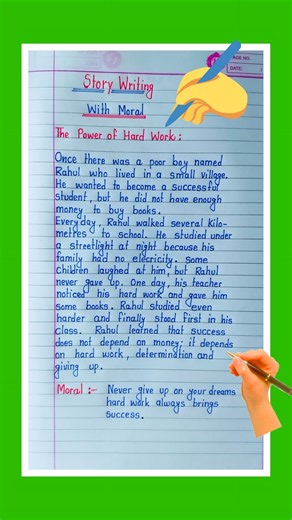 PAGE NO.
DATE:
Story Writing
With Moral
The Power of Hard Work:
Once there was a poor boy named
Rahul who lived in a small village.
He wanted to become a successful
student, but he did not have enough
money to buy books.
Everyday, Rahul walked several Kilo-
metres to school. He studied under
a streetlight at night because his
family had no elecricity. some
children laughed at him, but Rahul
never gave up. One day, his teacher
noticed his hard work and gave him
some books. Rahul studied even
harder and finally stood first in his
class. Rahul learned that success
does not depend on money; it depends
on hard work, determination and
giving up.
Moral :- Never give up on your dreams
hard work always brings
success.